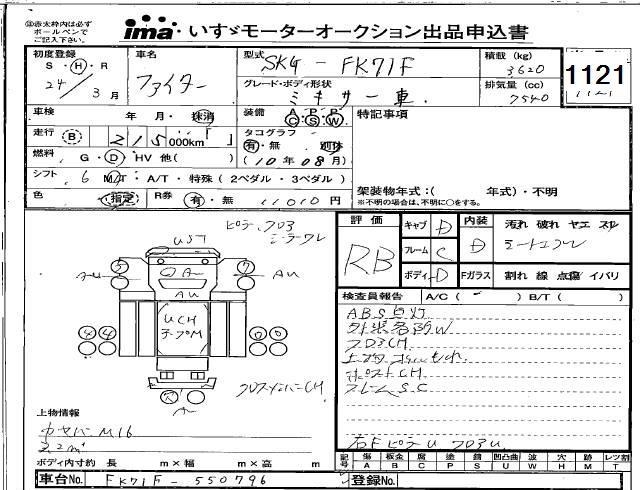 赤太枠内は必ず
ボールペンで
ご記入下さい。
ima・いすゞモーターオークション出品申込書
初度登録
S・H・R
24年3月
車名
ファイター
型式
SKG - FK71F
積載(kg)
3,620
グレード・ボディ形状
ミキサー車
排気量(cc)
7540
1121
1121
車検 年・月・抹消
装備 A C P S P W
特記事項
走行 B 215000km
タコグラフ
有・無 別体
燃料 G・D HV 他( )
(10年08月)
シフト 6 M/T・A/T・特殊(2ペダル・3ペダル)
色 指定
R券 有・無 11010円
架装物年式:( 年式)・不明
※不明の場合は、不明に○をする。
評価
RB
キャブ D
内装 D
汚れ 破れ ヤエ スレ
フレーム C
ボディ D
Fガラス 割れ 線 点傷 イバリ
検査員報告 A/C( ) B/T( )
UST
AU
AU
A
AU
UCH
ABS点灯
外装各所W
フロアCH
ポストCH
フレームS.C
クロスメンバーCH
上物情報
カヤバ M16
3.2m³
右Fピラー U フロアU
ボディ内寸約 長 m×幅 m×高 m
記号 傷 A 板金 B 腐 C 塗 P 錆 S 凹凸曲 U 波 W 穴 H 跡 M レツ割 T
車台No. FK71F-550796
登録No.